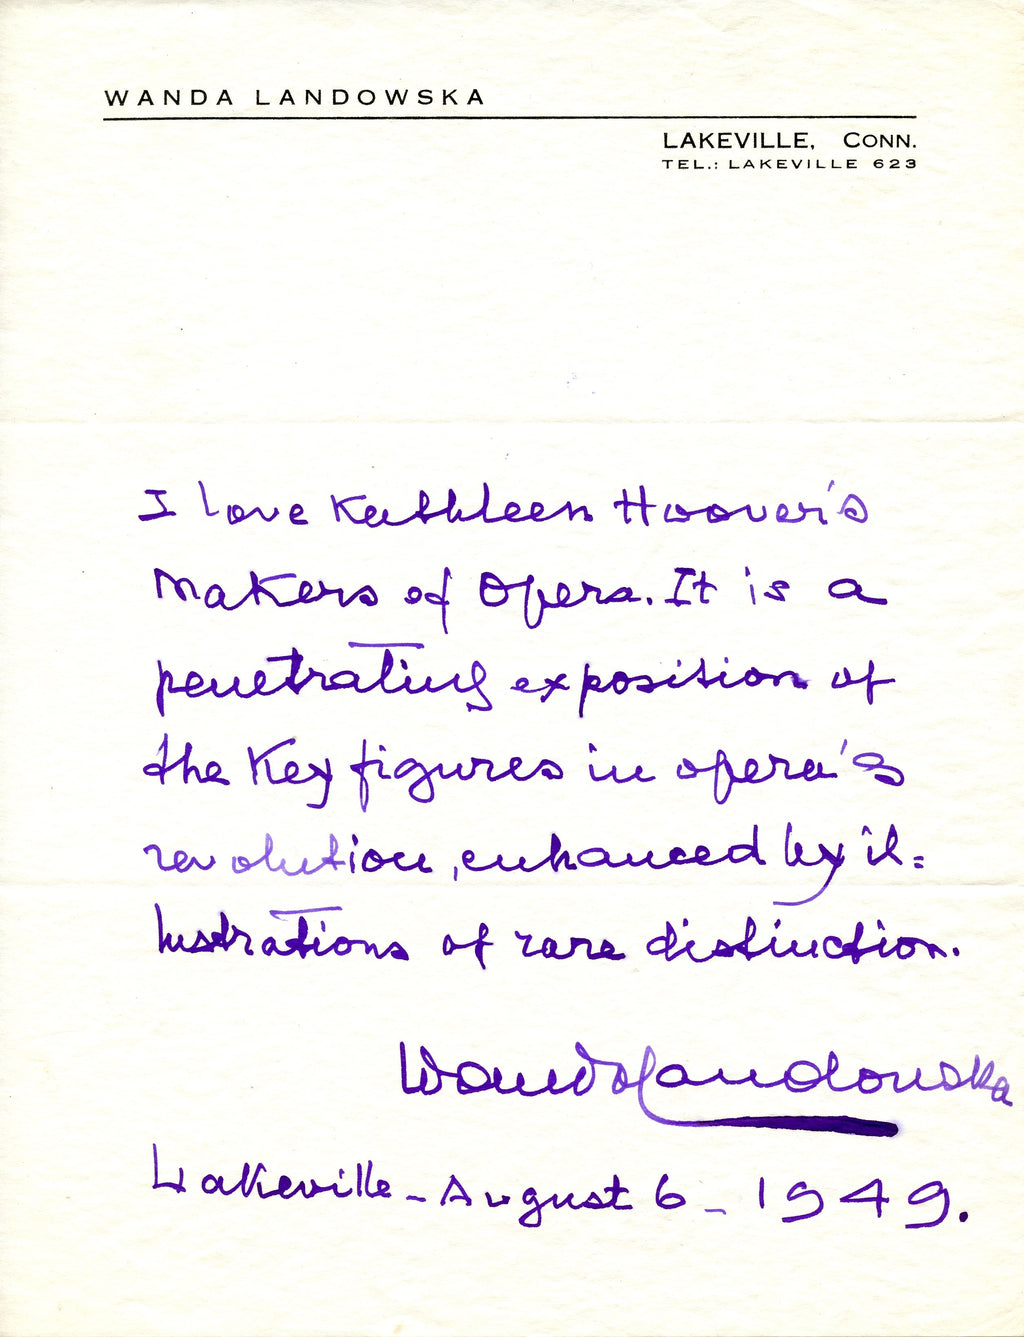 WANDA LANDOWSKA
LAKEVILLE, CONN.
TEL.: LAKEVILLE 623
I love Kathleen Hoover's
Makers of Opera. It is a
penetrating exposition of
the Key figures in opera's
revolution, enhanced by il=
lustrations of rare distinction.
Wanda Landowska
Lakeville - August 6 - 1949.